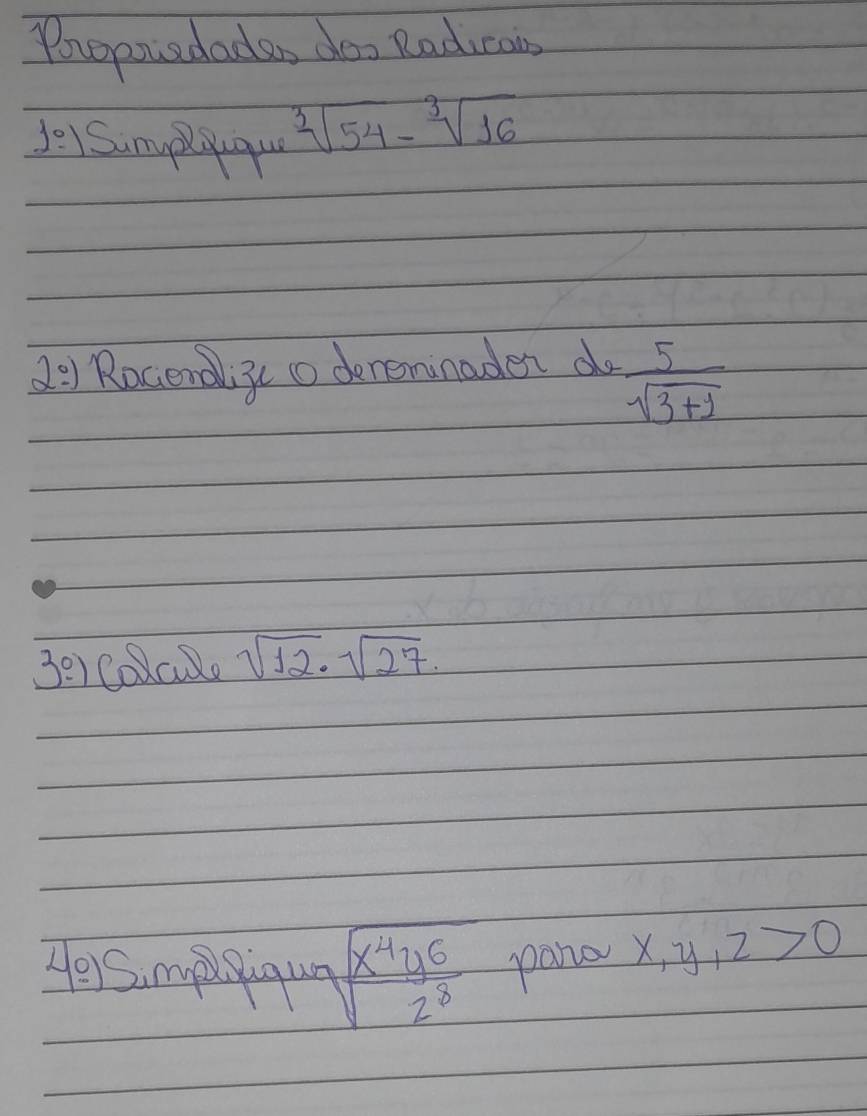 Propriedades dos Radicais
1º) Simplifique ∛54 - ∛16
2º) Racionalize o denominador de 5/√(3+1)
3º) Calcule √12 . √27.
4º) Simplifique √(x⁴y⁶/z⁸) para x, y, z > 0